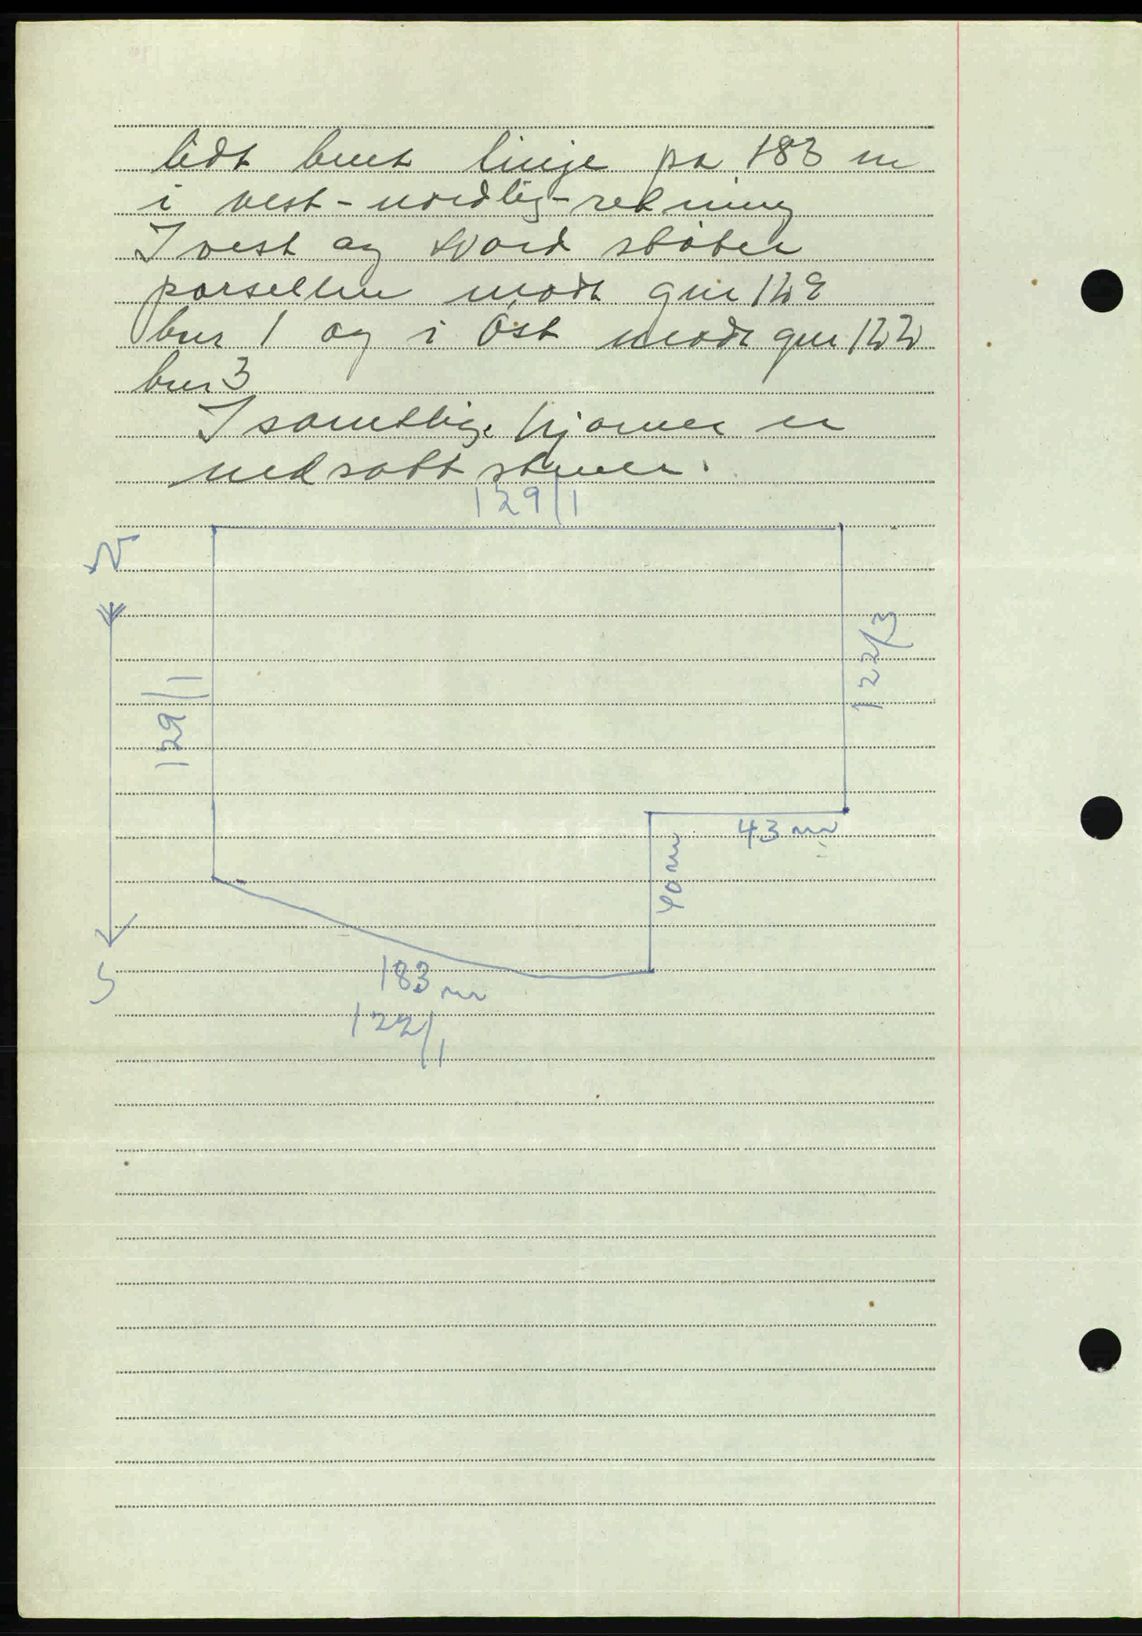 lidt buet linje på 183 m
i vest-nordlig-retning
I vest og Nord støter
parsellen modt gnr 129
bnr 1 og i Öst modt gnr 122
bnr 3
I samtlige hjørner er
nedsatt stener.
129/1
N
129/1
122/3
43 m
40 m
183 m
122/1
S